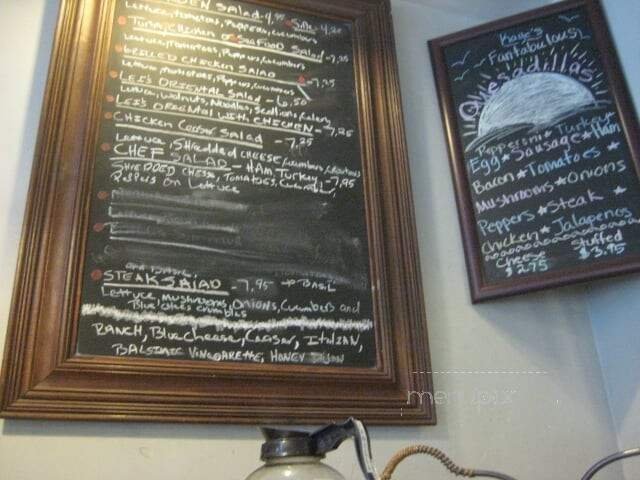 DEN SALAD - 4.95 Side - 4.20
Lettuce, Tomatoes, Peppers, Cucumbers
Tuna, Chicken or Seafood Salad - 7.25
Lettuce, Tomatoes, Peppers, Cucumbers
GRILLED CHICKEN SALAD - 7.25
Lettuce, Tomatoes, Peppers, Cucumbers
LEI'S ORIENTAL SALAD - 6.50
Lettuce, Walnuts, Noodles, Scallions, Celery
LEI'S ORIENTAL WITH CHICKEN - 7.25
CHICKEN Caesar Salad - 7.25
Lettuce, Shredded CHEESE, Cucumbers,
CHEF SALAD - HAM, Turkey, - 7.95
SHREDDED CHEESE, TOMATOES, Cucumber,
Peppers on Lettuce
STEAK SALAD - 7.95 → BASIL
Lettuce, Mushrooms, Onions, Cucumbers and
Blue crumbles
RANCH, Blue Cheese, Caesar, Italian,
BALSIMIC VINEGARETTE, HONEY DIJON
Kaye's
Fantabulous
Quesadillas
Pepperoni Turkey
Egg Sausage Ham
Bacon Tomatoes
Mushrooms Onions
Peppers Steak
Chicken Jalapenos
Cheese Stuffed
$2.75 $3.95
menupix